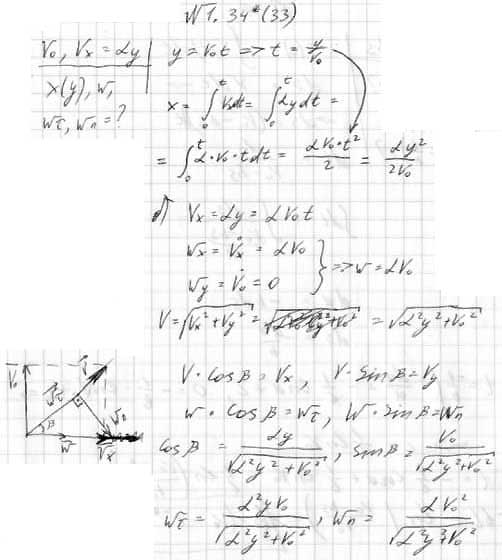 №1.34*(33)
V₀, Vₓ = αy
x(y), w,
wτ, wₙ = ?
y = V₀t => t = y/V₀
x = ∫₀ᵗ Vₓdt = ∫₀ᵗ αy dt =
= ∫₀ᵗ α·V₀·t dt = αV₀·t²/2 = αy²/2V₀
б) Vₓ = αy = αV₀t
wₓ = V̇ₓ = αV₀
w_y = V̇₀ = 0 } => w = αV₀
V = √(Vₓ² + V_y²) = = √(α²y² + V₀²)
V·cosβ = Vₓ, V·sinβ = V_y
w·cosβ = wτ, w·sinβ = wₙ
cosβ = αy/√(α²y² + V₀²), sinβ = V₀/√(α²y² + V₀²)
wτ = α²yV₀/√(α²y² + V₀²), wₙ = αV₀²/√(α²y² + V₀²)
V₀
V
wτ
wₙ
β
w
Vₓ